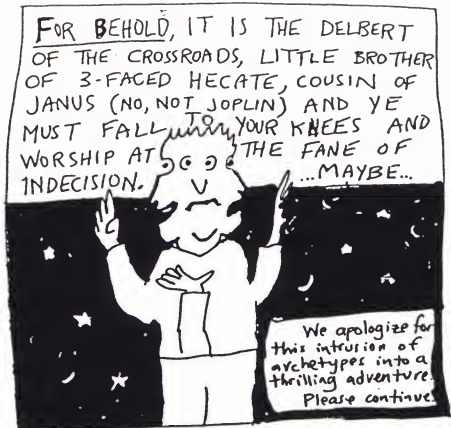 FOR BEHOLD, IT IS THE DELBERT
OF THE CROSSROADS, LITTLE BROTHER
OF 3-FACED HECATE, COUSIN OF
JANUS (NO, NOT JOPLIN) AND YE
MUST FALL TO YOUR KNEES AND
WORSHIP AT THE FANE OF
INDECISION. ...MAYBE...
We apologize for
this intrusion of
archetypes into a
thrilling adventure.
Please continue.